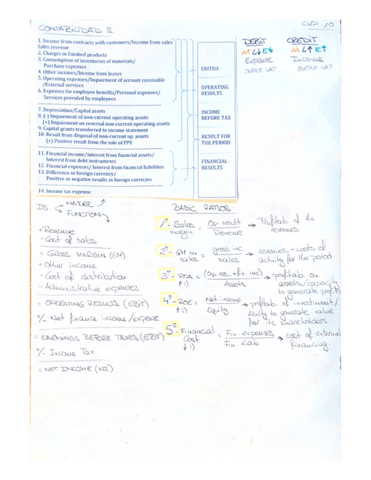 CONTABILIDAD II
1. Income from contracts with customers/Income from sales
Sales revenue
2. Charges in finished products
3. Consumption of inventories of materials/
Purchase expenses
4. Other incomes/Income from leases
5. Operating expenses/Impairment of account receivable
/External services
6. Expenses for employee benefits/Personal expenses/
Services provided by employees
7. Depreciation/Capital assets
8. (-) Impairment of non-current operating assets
(+) Impairment on reversal non-current operating assets
9. Capital grants transferred to income statement
10. Result from disposal of non-current op. assets
(+) Positive result from the sale of PPE
11. Financial income/Interest from financial assets/
Interest from debt instruments
12. Financial expenses/Interest from financial liabilities
13. Difference in foreign currency/
Positive or negative results in foreign currencies
14. Income tax expense
EBITDA
OPERATING
RESULTS
INCOME
BEFORE TAX
RESULT FOR
THE PERIOD
FINANCIAL
RESULTS
DEBIT
A↑ L↓ E↓
EXPENSE
CREDIT
A↓ L↑ E↑
INCOME
IS
NATURE ↗
FUNCTION ↘
+ Revenue
- Cost of sales
= GROSS MARGIN (GM)
+ Other income
- Cost of distribution
- Administrative expenses
= OPERATING RESULTS (EBIT)
+/- Net finance income/expense
= EARNINGS BEFORE TAXES (EBT)
+/- Income Tax
= NET INCOME (NI)
BASIC RATIOS
1º- Sales margin = Op result / Revenue → Profitab of the revenues
2º- GM on sales = gross inc / sales → revenues - costs of activity for the period
3º- ROA = (Op res. + fin inc) / Assets → profitab on assets/capacity to generate profits
4º- ROE = Net income / Equity → profitab of investment/ ability to generate value for its shareholders
5º- Financial Cost = Fin expenses / Fin Liab → cost of external financing